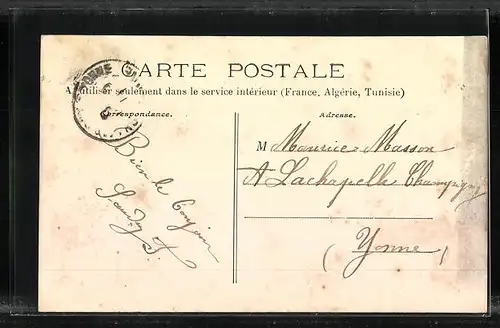 CARTE POSTALE
A utiliser seulement dans le service intérieur (France, Algérie, Tunisie)
Correspondance.
Adresse.
Bien le Bonjour
M Maurice Masson
A Lachapelle Champigny
(Yonne)